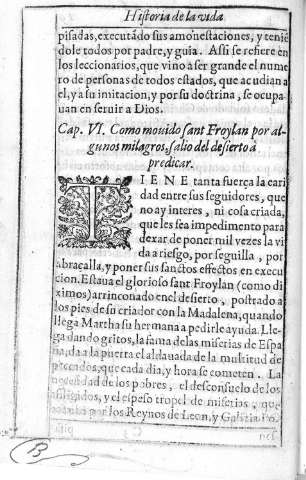 Historia de la vida
pisadas, executãdo sus amonestaciones, y tenié
dole todos por padre, y guia. Assi se refiere en
los leccionarios, que vino a ser grande el nume
ro de personas de todos estados, que acudian a
el, y a su imitacion, y por su doctrina, se ocupa
uan en seruir a Dios.
Cap. VI. Como mouido sant Froylan por al-
gunos milagros, salio del desierto à
predicar.
TIENE tanta fuerça la cari
dad entre sus seguidores, que
no ay interes, ni cosa criada,
que les sea impedimento para
dexar de poner mil vezes la vi
da a riesgo, por seguilla, por
abraçalla, y poner sus sanctos effectos en execu
cion. Estaua el glorioso sant Froylan (como di
ximos) arrinconado en el desierto, postrado a
los pies de su criador con la Madalena, quando
llega Martha su hermana a pedirle ayuda. Lle-
ga dando gritos, la fama de las miserias de Espa
ña, da a la puerta el aldauada de la multitud de
peccados, que cada dia, y hora se cometen. La
necessidad de los pobres, el desconsuelo de los
afligidos, y el espeso tropel de miserias, que
por los Reynos de Leon, y Galizia
B